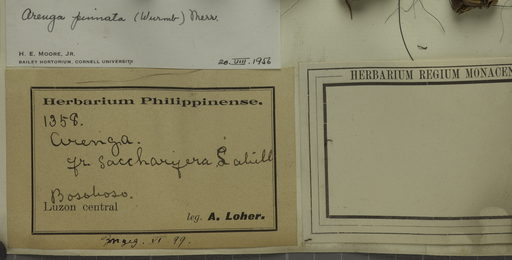 Arenga pinnata (Wurmb) Merr.
H. E. MOORE, JR.
BAILEY HORTORIUM, CORNELL UNIVERSITY
20. VIII. 1956
HERBARIUM REGIUM MONACEN
Herbarium Philippinense.
1358.
Arenga.
saccharifera Labill
Bosoboso.
Luzon central
leg. A. Loher.
VI. 99.